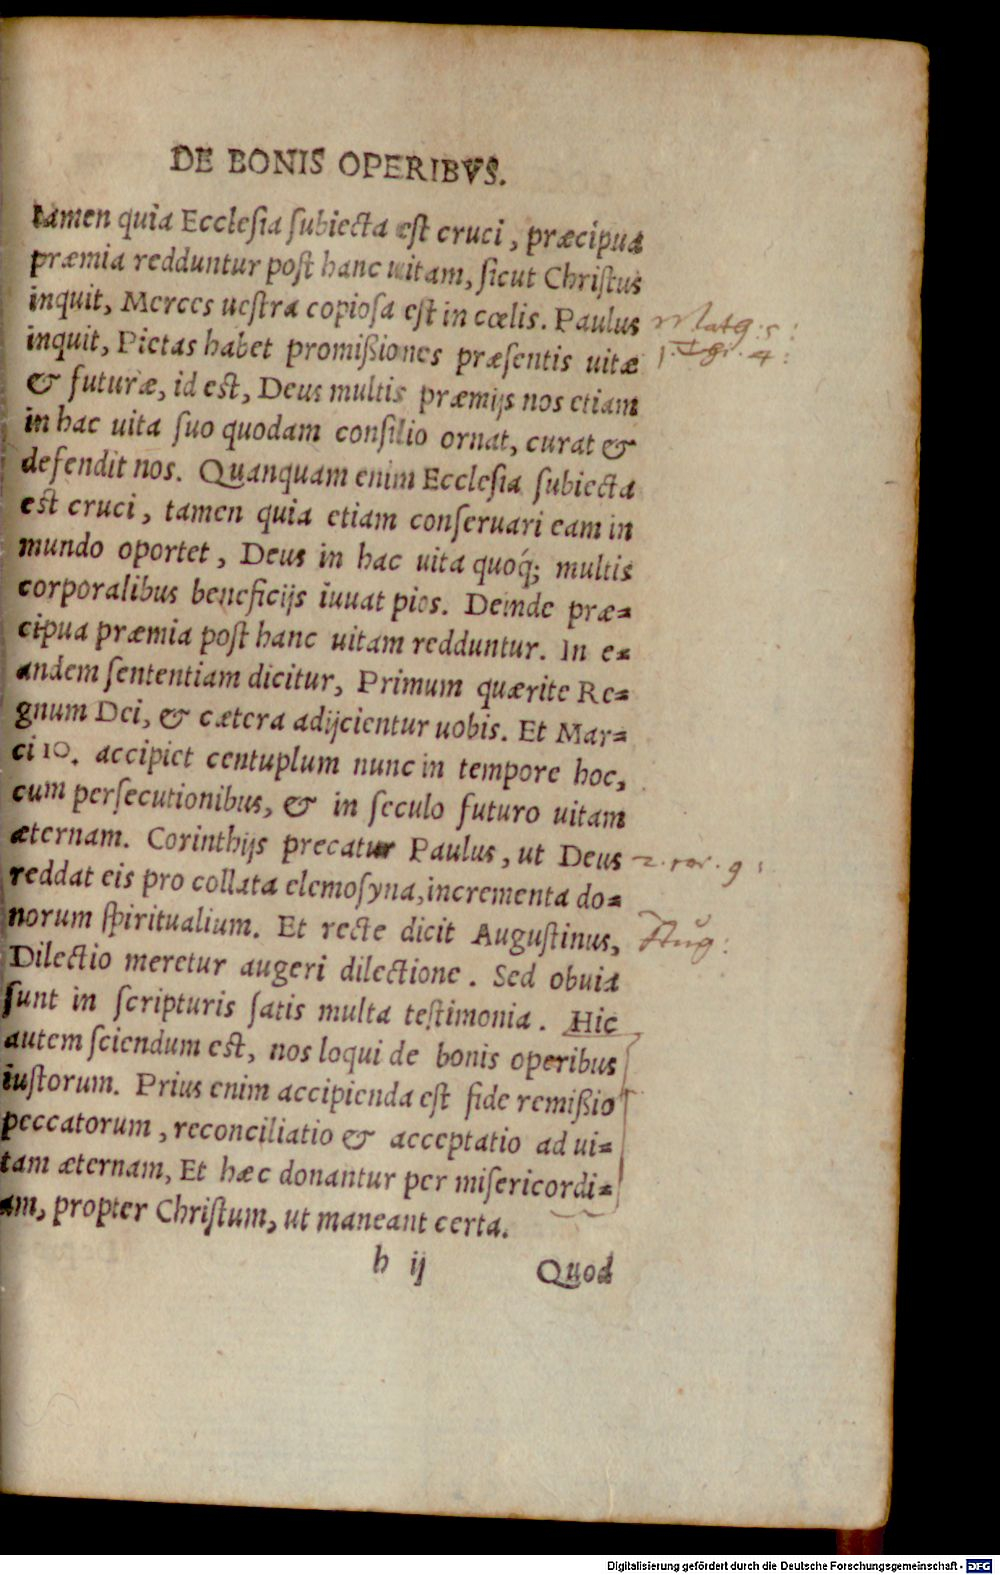 DE BONIS OPERIBVS.
tamen quia Ecclesia subiecta est cruci, præcipua
præmia redduntur post hanc uitam, sicut Christus
inquit, Merces uestra copiosa est in cœlis. Paulus
Matth: 5:
inquit, Pietas habet promißiones præsentis uitæ
1. Ti. 4:
& futuræ, id est, Deus multis præmijs nos etiam
in hac uita suo quodam consilio ornat, curat &
defendit nos. Quanquam enim Ecclesia subiecta
est cruci, tamen quia etiam conseruari eam in
mundo oportet, Deus in hac uita quoq́; multis
corporalibus beneficijs iuuat pios. Deinde præ=
cipua præmia post hanc uitam redduntur. In e=
andem sententiam dicitur, Primum quærite Re=
gnum Dei, & cætera adijcientur uobis. Et Mar=
ci 10. accipiet centuplum nunc in tempore hoc,
cum persecutionibus, & in seculo futuro uitam
æternam. Corinthijs precatur Paulus, ut Deus
2. cor. 9:
reddat eis pro collata elemosyna, incrementa do=
norum spiritualium. Et recte dicit Augustinus,
Aug:
Dilectio meretur augeri dilectione. Sed obuia
sunt in scripturis satis multa testimonia. Hic
autem sciendum est, nos loqui de bonis operibus
iustorum. Prius enim accipienda est fide remißio
peccatorum, reconciliatio & acceptatio ad ui=
tam æternam, Et hæc donantur per misericordi=
am, propter Christum, ut maneant certa.
h ij Quod
Digitalisierung gefördert durch die Deutsche Forschungsgemeinschaft - DFG